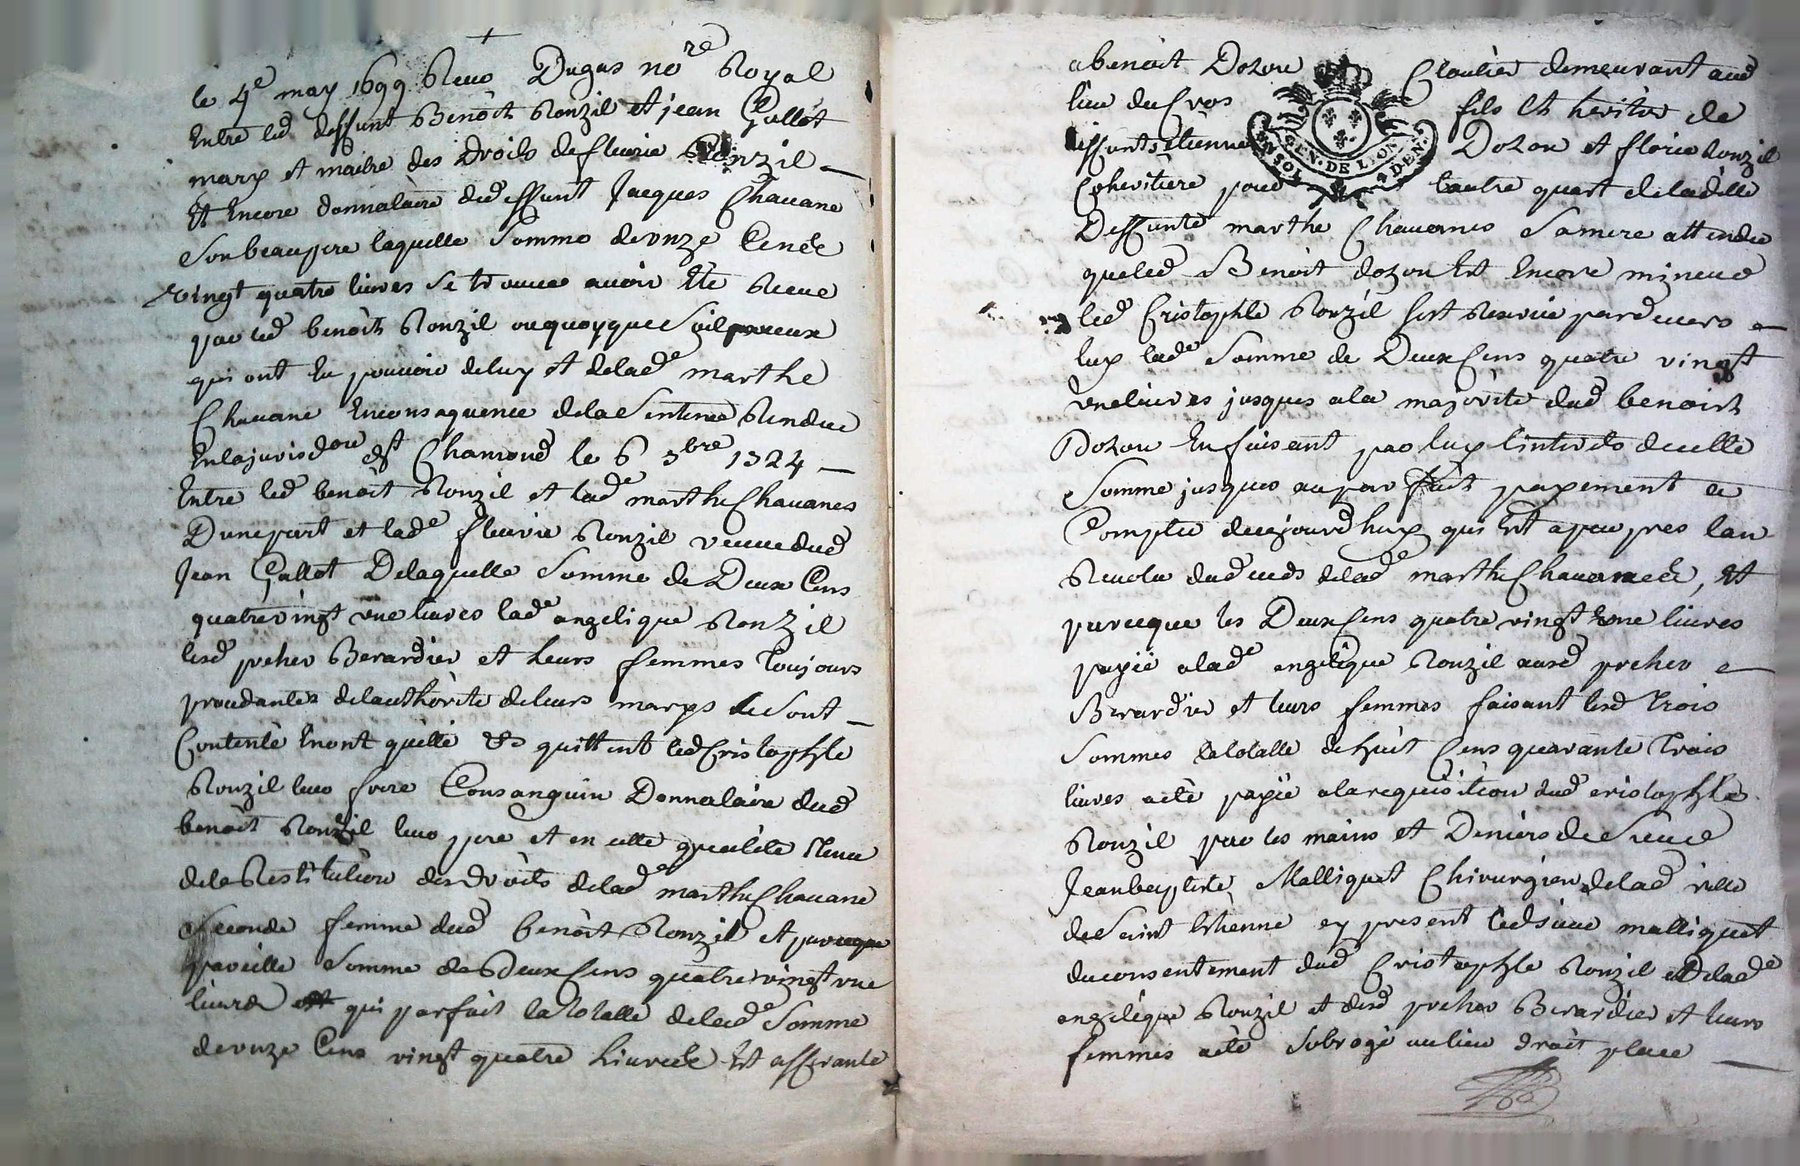 le 4e may 1699 Receu Dugas nore Royal
Entre led deffunt Benoît Ronzil et jean Gallot
mary et maitre des droits de fleurie Ronzil
Et Encore donnataire dud effunt Jacques Chauane
Son beaupere laquelle Somme de onze Cens
vingt quatre liures Se trouue auoir Eté Receue
par led benoît Ronzil ou quoyque Soit par eux
qui ont Eu pouuoir de luy et de lade marthe
Chauane En consequence de la Sentence Rendue
En la jurisdon de st Chamond le 6 9bre 1724
Entre led benoit Ronzil et lade marthe Chauanes
D'une part et lade fleurie Ronzil veuue dud
Jean Gallot De laquelle Somme de Deux Cens
quatre vingt vne liures lade angelique Ronzil
lesd preher Berardier et leurs femmes Toujours
procedantes de lauthorité de leurs marys Se Sont
Contenté Enont quitté & quittent led Cristophle
Ronzil leur frere Consanguin Donnataire dud
benoît Ronzil leur pere et en cette qualité Tenu
de la Restitution des droits de lade marthe Chauane
Seconde femme dud benoît Ronzil et pareque
pareille Somme de Deux Cens quatre vingt vne
liures qui parfait la totalle de lade Somme
de onze Cens vingt quatre Liures Est afferante
a benoit Dozon Cloutier demeurant aud
lieu du Cros fils Et heritier de
deffunts etienne Dozon et florie Ronzil
Coheritiere pour Lautre quart de lad
Deffunte marthe Chauanes Sa mere attendu
que led Benoit dozon Est Encore mineur
led Cristophle Ronzil Sest Reserué pardeuers
luy lade Somme de Deux Cens quatre vingt
vne liures jusques a la majorité dud benoist
Dozon En faisant par luy linterets dicelle
Somme jusques au parfait payement a
Compter de cejourdhuy qui Est a peu pres lan
Reuolu du deceds de lade marthe Chauane, Et
pareque les Deux Cens quatre vingt vne liures
payé a lade angelique Ronzil ausd preher
Berardier et leurs femmes faisant lesd Trois
Sommes la totalle de huit Cens quarante Trois
liures a eté payée a la requisition dud cristophle
Ronzil par les mains et Deniers de Sieur
Jean baptiste Malliquet Chirurgien de lad ville
de Saint Ethienne cy present led sieur malliquet
du consentement dud Cristophle Ronzil et De lade
angelique Ronzil et desd preher Berardier et leurs
femmes a eté Subrogé au lieu droit place
GEN. DE LION